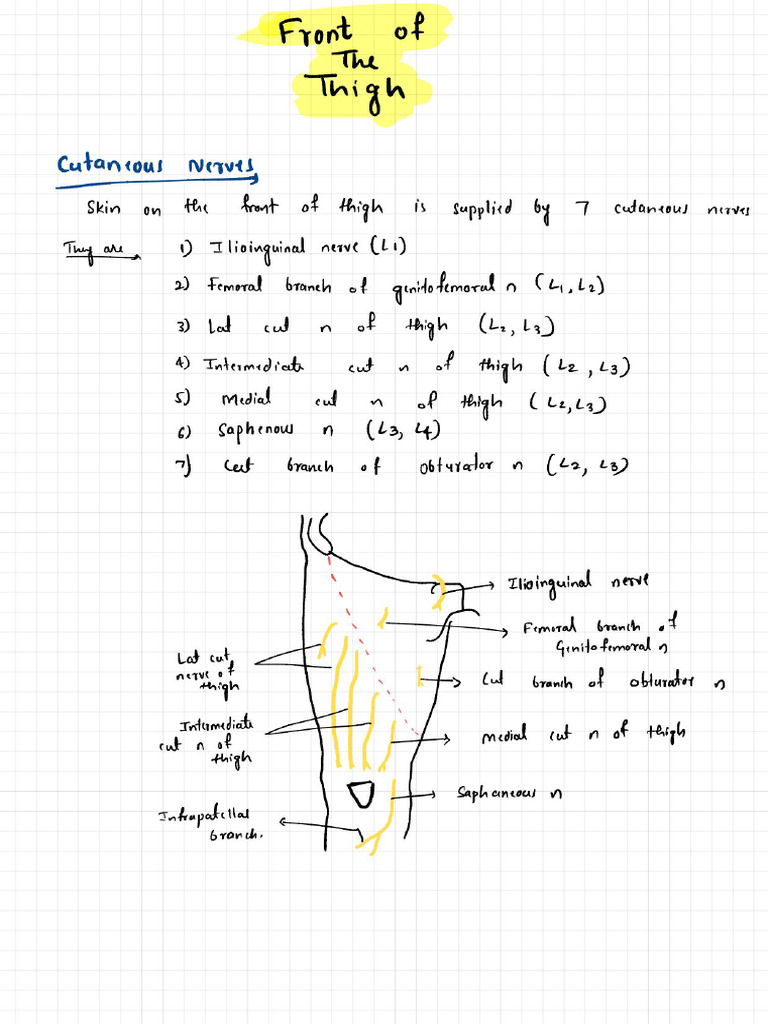 Front of
The
Thigh
Cutaneous Nerves
Skin on the front of thigh is supplied by 7 cutaneous nerves
They are 1) Ilioinguinal nerve (L1)
2) Femoral branch of genitofemoral n (L1, L2)
3) Lat cut n of thigh (L2, L3)
4) Intermediate cut n of thigh (L2, L3)
5) Medial cut n of thigh (L2, L3)
6) Saphenous n (L3, L4)
7) Cut branch of obturator n (L2, L3)
Ilioinguinal nerve
Femoral branch of
Genitofemoral n
Lat cut
nerve of
thigh
Cut branch of obturator n
Intermediate
cut n of
thigh
Medial cut n of thigh
Saphaneous n
Infrapatellar
branch.